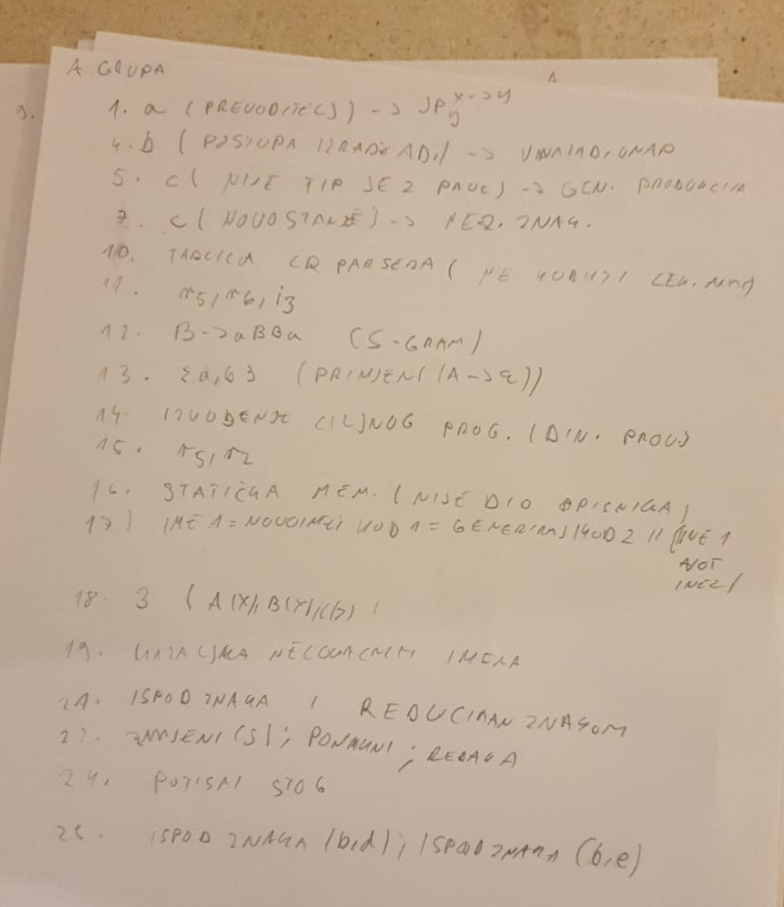 A GRUPA
1. a (PREVODITELJ) -> JP y x->y
4. b (POSTUPA IZRADE
5. c ( NIJE TIP JEZ PROC) -> GEN. PRODUKCIJA
7. c( NOVOSTANJE) -> ZNAK.
10. TABLICA LR PARSERA ( NE KORISTI
11. r5, r6, i3
12. B->aBBa (S-GRAM)
13. {a,b} (PRIMJENI(A->ε))
14 IZVOĐENJE CILJNOG PROG. (DIN. PROV)
15. r5, r2
16. STATIČKA MEM. ( NIJE DIO OPISNIKA)
17) IME 1 = NOVOIME; KOD 1 = GENERIRAJ KOD 2 //
NOT
18. 3 ( A(X), B(Y),
19. KAZALJKA NELOKALNIH IMENA
21. ISPOD ZNAKA I REDUCIRAN ZNAKOM
ZAMJENI(S); POMAKNI;
24. POTISNI STOG
25. ISPOD ZNAKA (b,d); ISPODZNAKA (b,e)